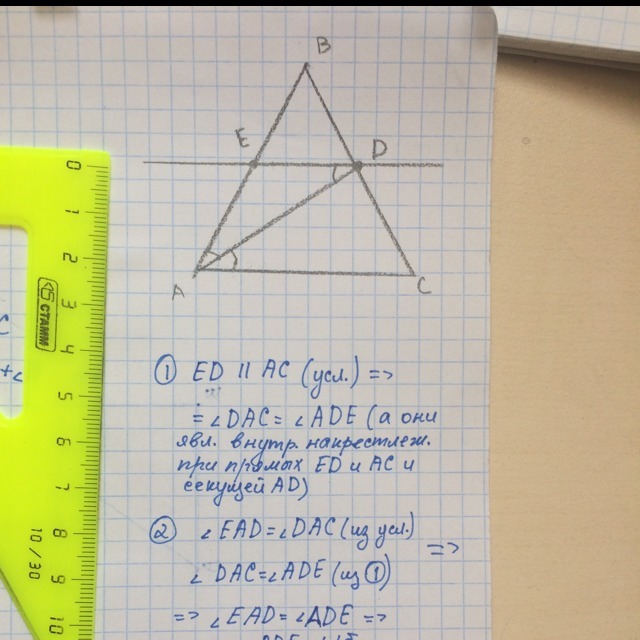 B
E
D
A
C
① ED || AC (усл.) =>
= ∠DAC = ∠ADE (а они
явл. внутр. накрестлеж.
при прямых ED и AC и
секущей AD)
② ∠EAD = ∠DAC (из усл.)
=>
∠DAC = ∠ADE (из ①)
=> ∠EAD = ∠ADE =>
0
1
2
3
4
5
6
7
8
9
10
СТАММ
10/30
C
+∠